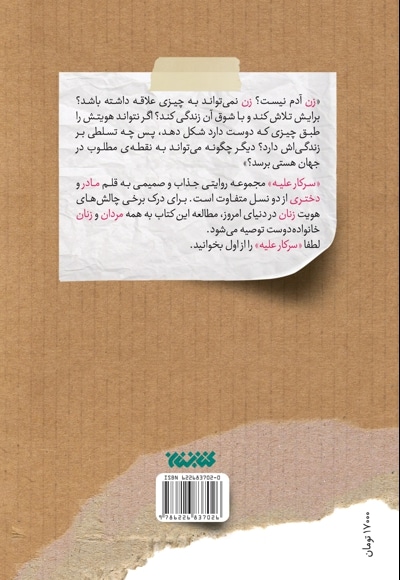 «زن آدم نیست؟ زن نمی‌تواند به چیزی علاقه داشته باشد؟
برایش تلاش کند و با شوق آن زندگی کند؟ اگر نتواند هویتش را
طبق چیزی که دوست دارد شکل دهد، پس چه تسلطی بر
زندگی‌اش دارد؟ دیگر چگونه می‌تواند به نقطه‌ی مطلوب در
جهان هستی برسد؟»
«سرکار علیه» مجموعه روایتی جذاب و صمیمی به قلم مادر و
دختری از دو نسل متفاوت است. برای درک برخی چالش‌های
هویت زنان در دنیای امروز، مطالعه این کتاب به همه مردان و زنان
خانواده‌دوست توصیه می‌شود.
لطفا «سرکار علیه» را از اول بخوانید.
ISBN 622683702-0
9 786226 837026
۱۷۰۰۰ تومان